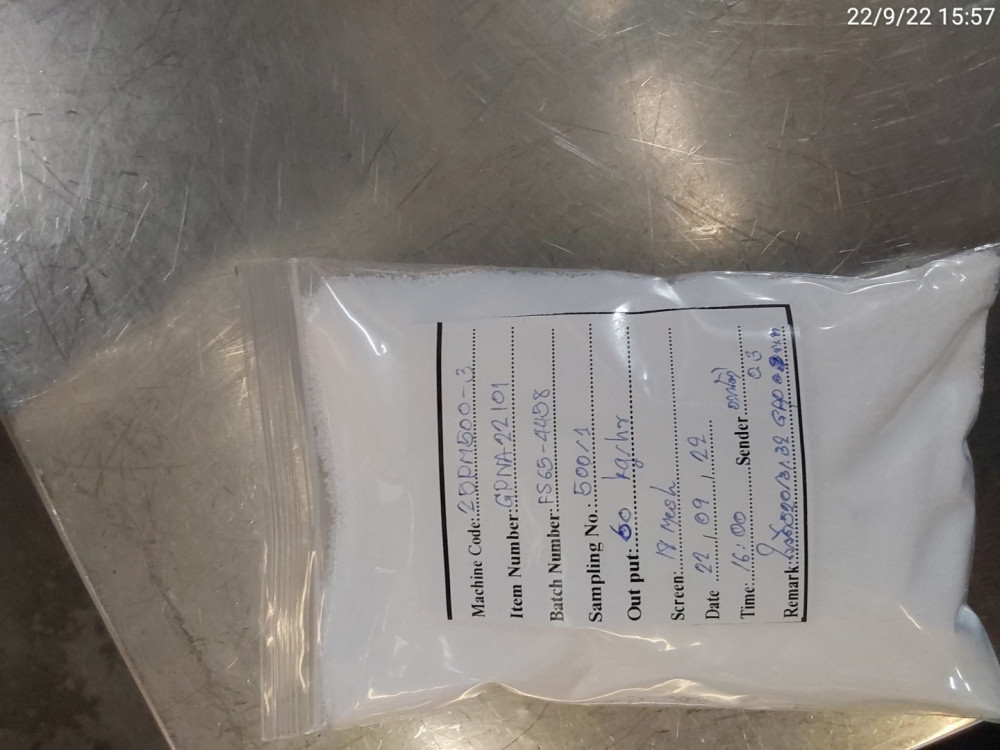 22/9/22 15:57
Machine Code: 25DM500-3
Item Number: GDNA22101
Batch Number: FS65-4458
Sampling No.: 500/1
Out put: 60 kg/hr
Screen: 18 Mesh
Date 22 / 09 / 22
Time: 16:00 Sender
Remark: